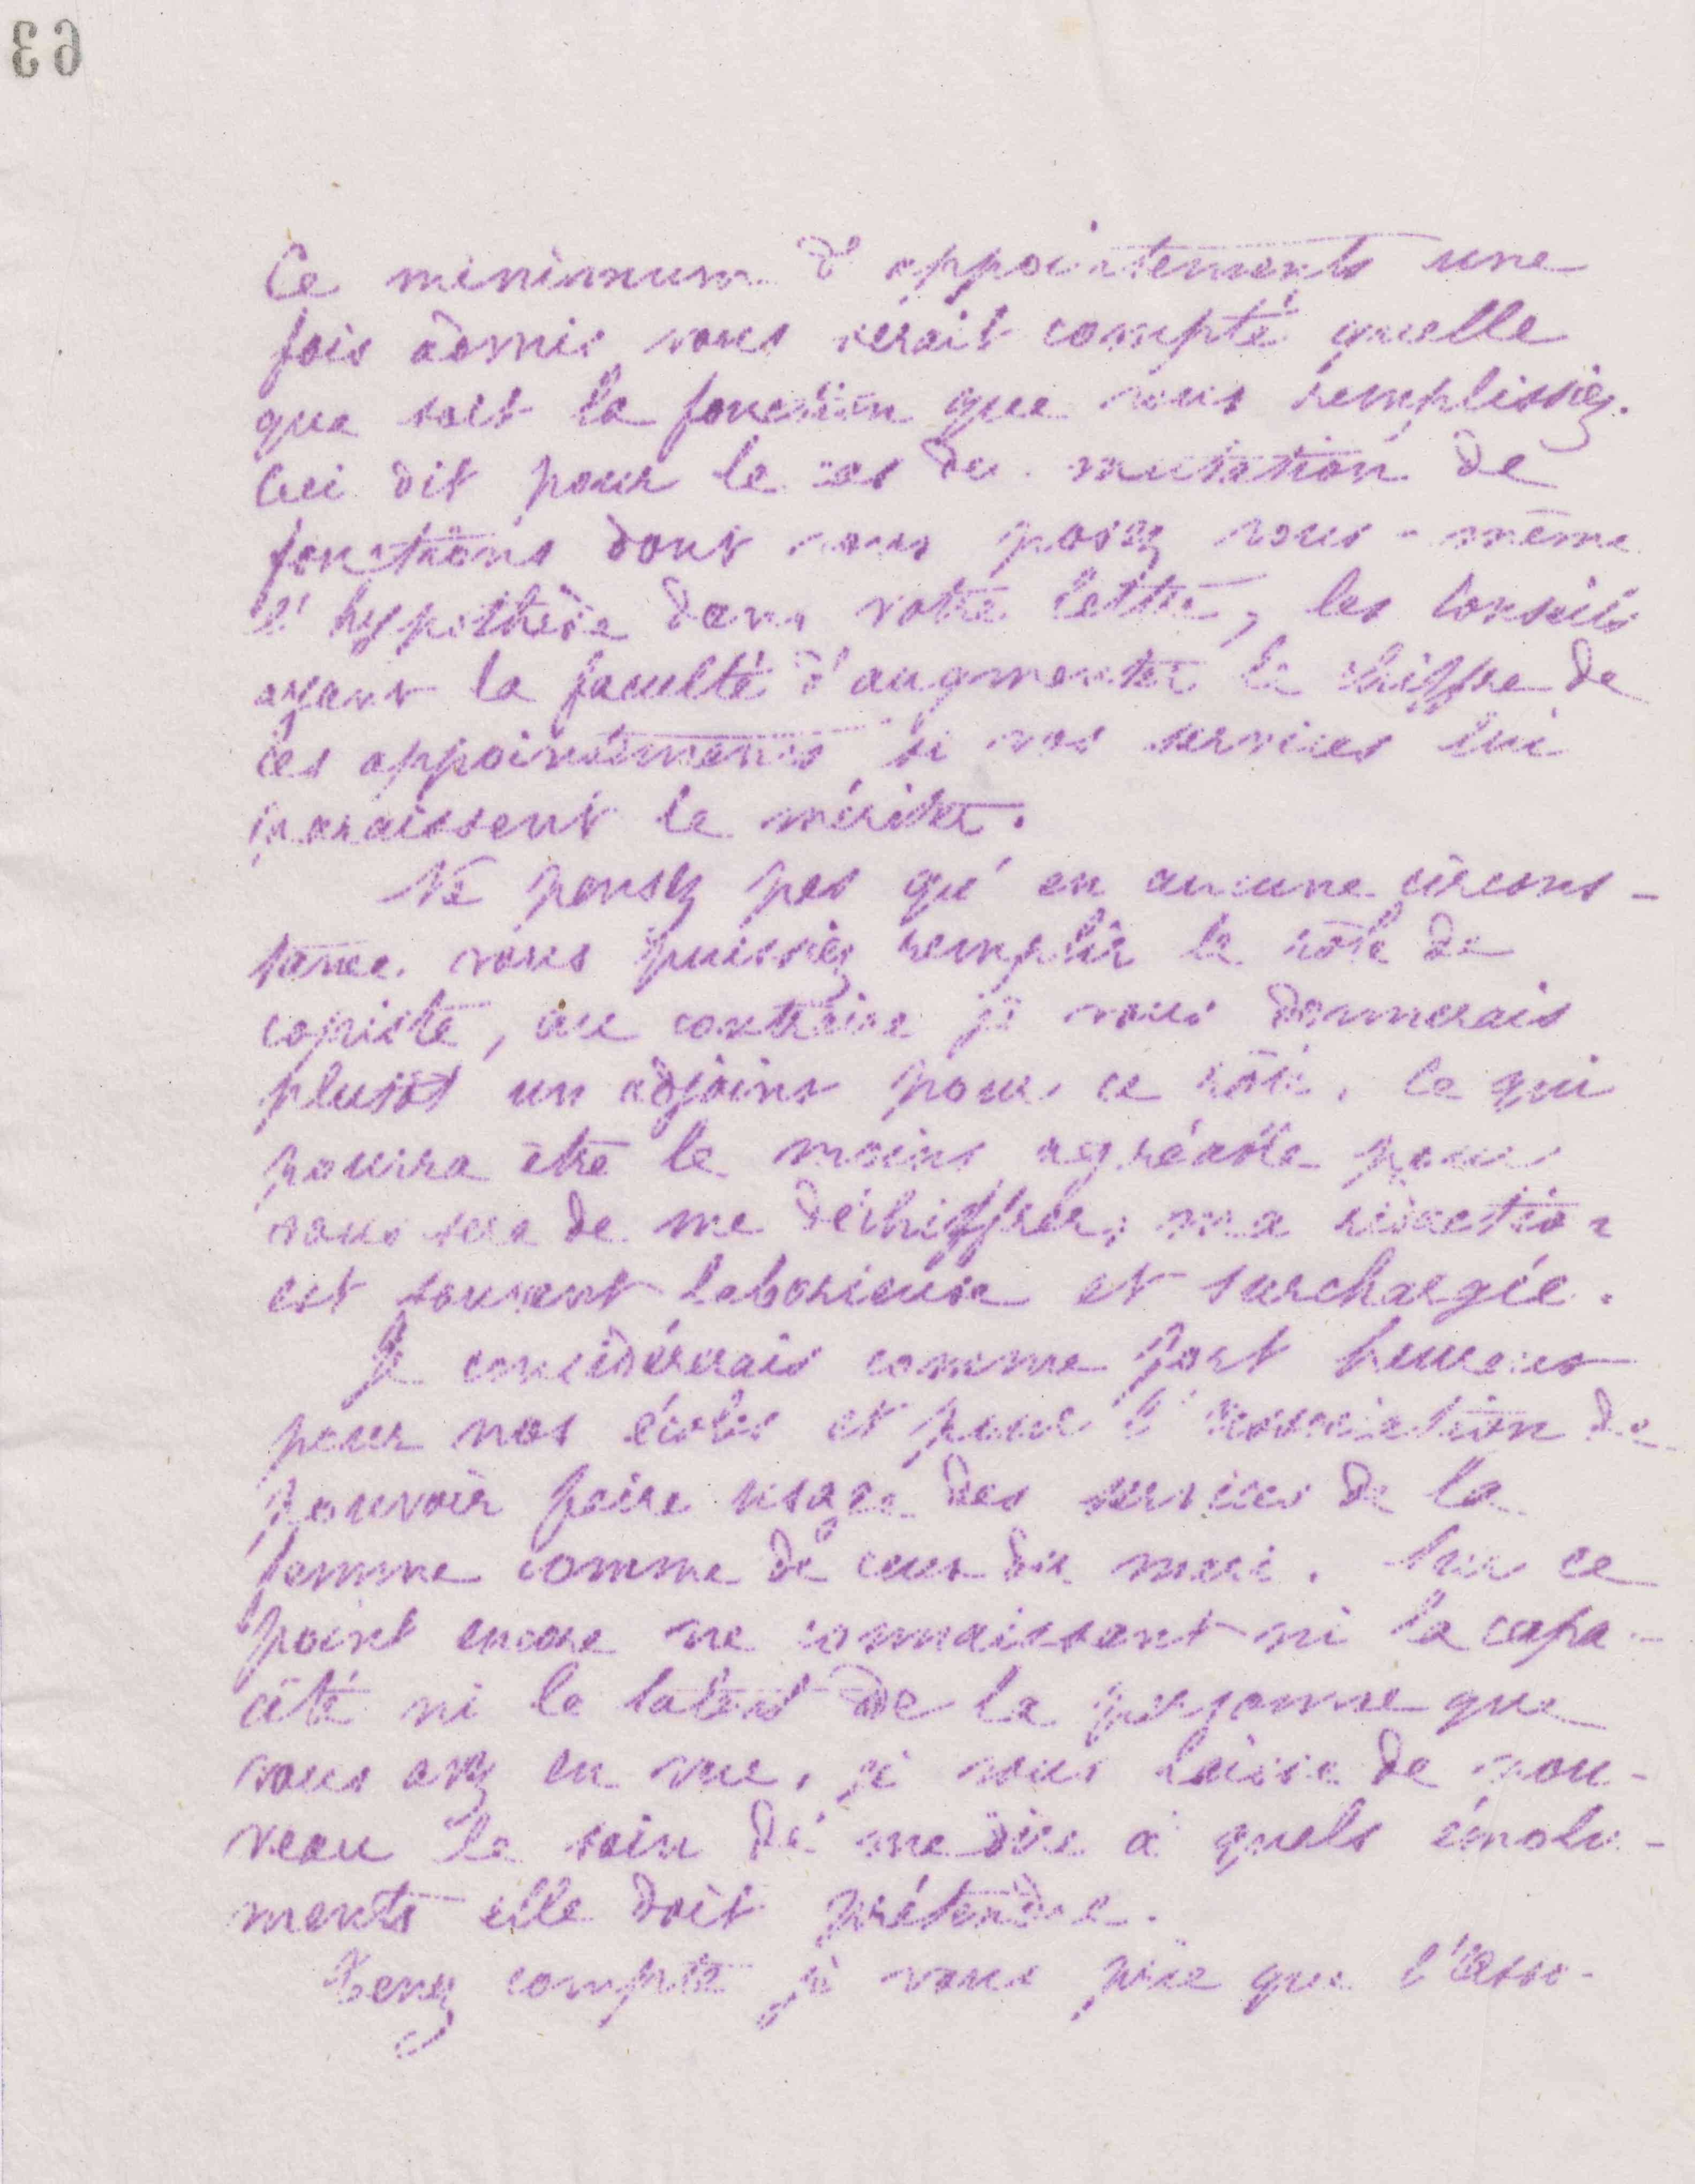 63
Ce minimum d'appointements une
fois admis vous serait compté quelle
que soit la fonction que vous remplissiez.
Ceci dit pour le cas de mutation de
fonctions dont vous posez vous-même
l'hypothèse dans votre lettre, les conseils
ayant la faculté d'augmenter le chiffre de
ces appointements si vos services lui
paraissent le mériter.
Ne pensez pas qu'en aucune circons-
tance vous puissiez remplir le rôle de
copiste, au contraire je vous donnerais
plutôt un adjoint pour ce rôle. Ce qui
pourra être le moins agréable pour
vous sera de me déchiffrer, ma rédaction
est souvent laborieuse et surchargée.
Je considérerais comme fort heureux
pour nos écoles et pour l'association de
pouvoir faire usage des services de la
femme comme de ceux du mari. Sur ce
point encore ne connaissant ni la capa-
cité ni le talent de la personne que
vous avez en vue, je vous laisse de nou-
veau le soin de me dire à quels émolu-
ments elle doit prétendre.
Tenez compte je vous prie que l'asso-